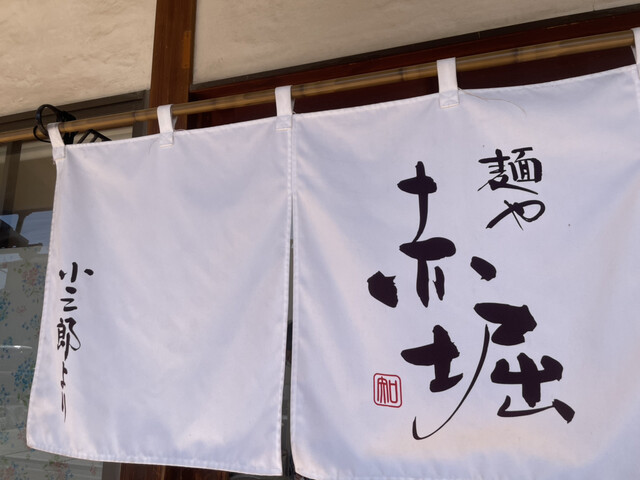 麺や
赤堀
知
小三郎より